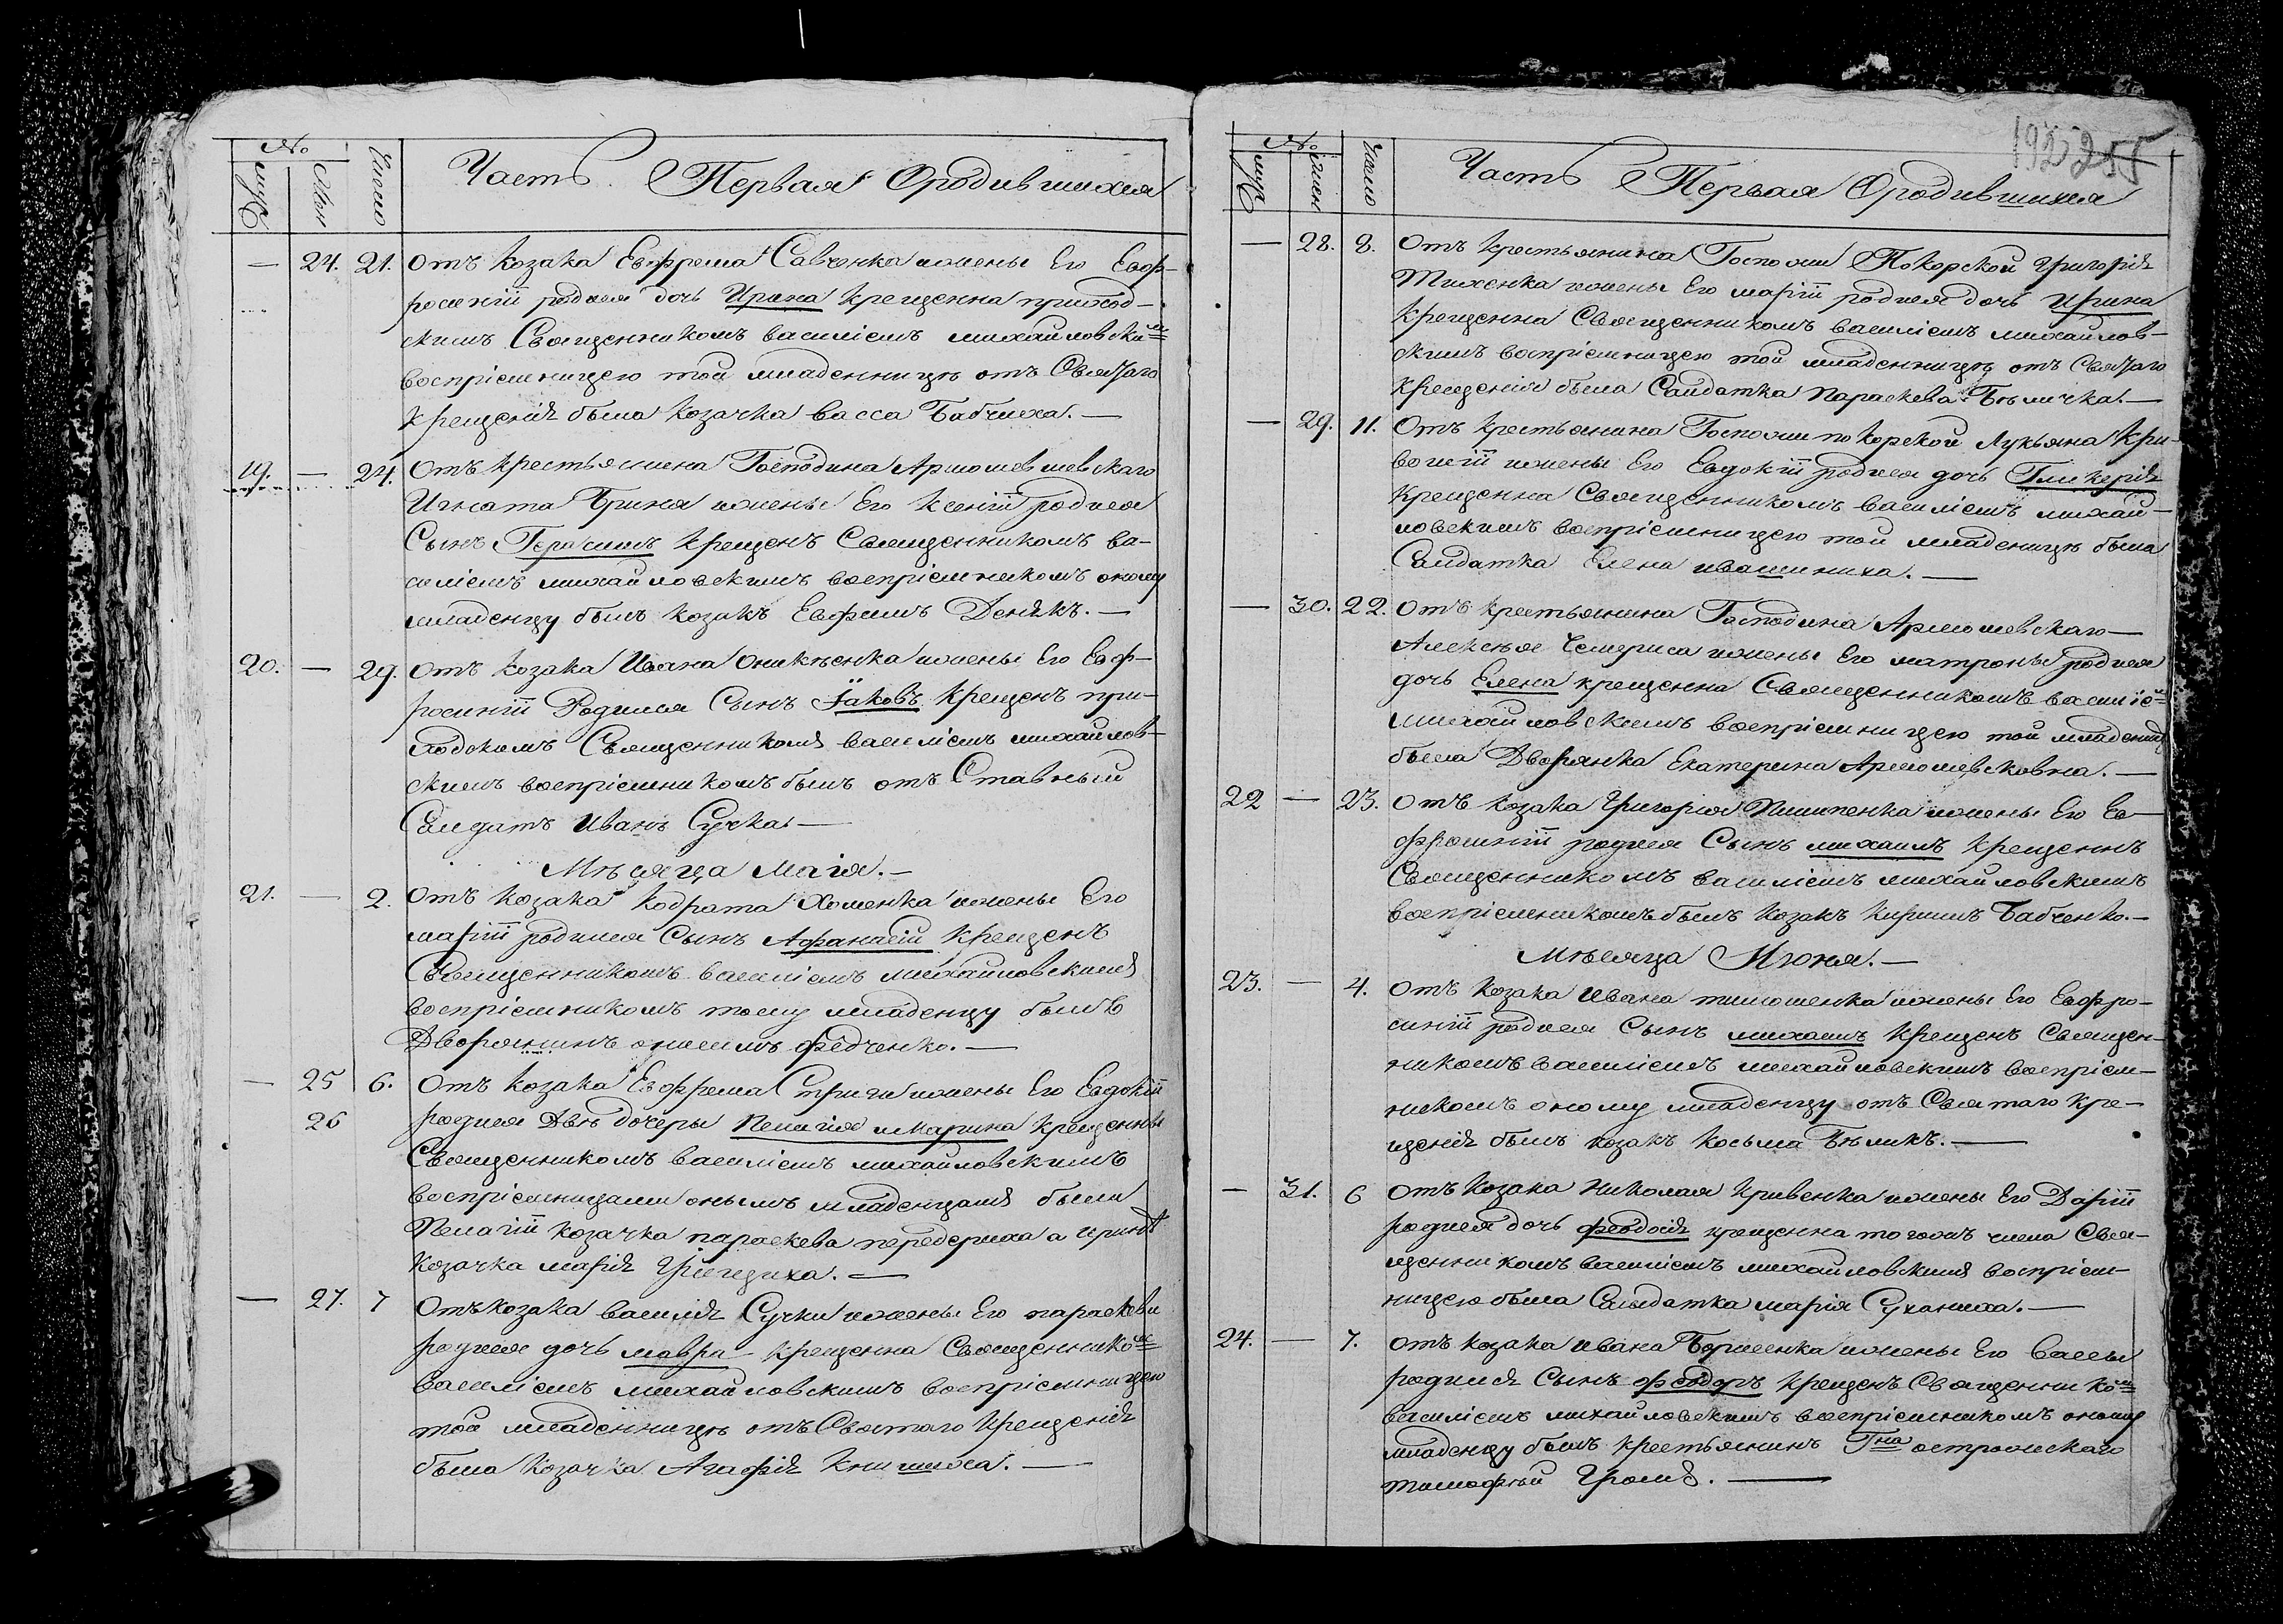 № Число Часть Первая О родившихся
муж жен
— 24. 21. Отъ козака Евфрема Савченка и жены Его Евф-
росинiи родися дочь Ирина крещенна приход-
скимъ Священникомъ василiемъ михайловским
воспрiемницею той младенницѣ отъ Святаго
крещенiя была козачка васса Бабчиха. —
19. — 24. Отъ крестьянина Господина Армошевскаго
Игната жены Его ксенiи родися
Сынъ Герасимъ крещенъ Священникомъ ва-
силiемъ михайловскимъ воспрiемникомъ оному
младенцу былъ козакъ Евфимъ Денякъ. —
20. — 29. отъ козака Ивана Оникѣенка и жены Его Евф-
росинiи Родился Сынъ Iаковъ крещенъ при-
ходскимъ Священникомъ василiемъ михайлов-
скимъ воспрiемникомъ былъ отъ Ставный
Салдатъ Иванъ Сучка. —
Мѣсяца Маiя. —
21. — 2. Отъ козака Кодрата Хоменка и жены Его
марiи родился Сынъ Афанасiй крещенъ
Священникомъ василiемъ михайловскимъ
воспрiемникомъ тому младенцу былъ
Дворянинъ онисимъ федченко. —
— 25 6. Отъ козака Евфрема Стриги и жены Его Евдокiи
26 родися Двѣ дочеры Пелагiя и Марина крещенны
Священникомъ василiемъ михайловскимъ
воспрiемницами онымъ младенцамъ были
Пелагiи козачка параскева передериха а иринѣ
козачка марiя Грицчиха. —
— 27. 7 Отъ козака василiя Сучки и жены Его параскеви
родися дочь мавра крещенна Священником
василiемъ михайловскимъ воспрiемницею
той младенницѣ отъ Святаго крещенiя
была козачка Агафiя книшиха. —
192 255
№ Число Часть Первая О родившихся
муж жен
— 28. 8. Отъ крестьянина Госпожи Покорской Григорiя
Тихенка и жены Его марiи родися дочь Ирина
крещенна Священникомъ василiемъ михайлов-
скимъ воспрiемницею той младенницѣ отъ Святаго
крещенiя была Салдатка параскева Бѣличка. —
— 29. 11. Отъ крестьянина Госпожи покорской Лукьяна Кри-
вошiи и жены Его Евдокiи родися дочь Гликерiя
крещенна Священникомъ василiемъ михай-
ловскимъ воспрiемницею той младеницѣ была
Салдатка Елена ивашиниха. —
— 30. 22. Отъ крестьянина Господина Армошевскаго —
Алексѣя Чемериса и жены Его матроны родися
дочь Елена крещенна Священникомъ василiем
михайловскимъ воспрiемницею той младениц
была Дворянка Екатерина Армошевсковна. —
22 — 23. Отъ козака Григорiя Пилипенка и жены Его Ев-
фросинiи родися Сынъ михаилъ крещеннъ
Священникомъ василiемъ михайловскимъ
воспрiемникомъ былъ козакъ кирилъ Бабченко. —
Мѣсяца Июня. —
23. — 4. Отъ козака ивана тимошенка и жены Его Евфро-
синiи родися Сынъ михаилъ крещенъ Священ-
никомъ василiемъ михайловскимъ воспрiем-
никомъ оному младенцу отъ Святаго кре-
щенiя былъ козакъ косьма Бѣликъ. —
— 31. 6 Отъ козака Николая Кривенка и жены Его Дарiи
родися дочь феодосiя крещенна того жъ числа Свя-
щенникомъ василiемъ михайловскимъ воспрiем-
ницею была Салдатка марiя Суханиха. —
24. — 7. отъ козака ивана Борисенка и жены Его Вассы
родился Сынъ феодоръ крещенъ Священником
василiемъ михайловскимъ воспрiемникомъ оному
младенцу былъ крестьянинъ Гна островскаго
тимофѣй Громъ. —